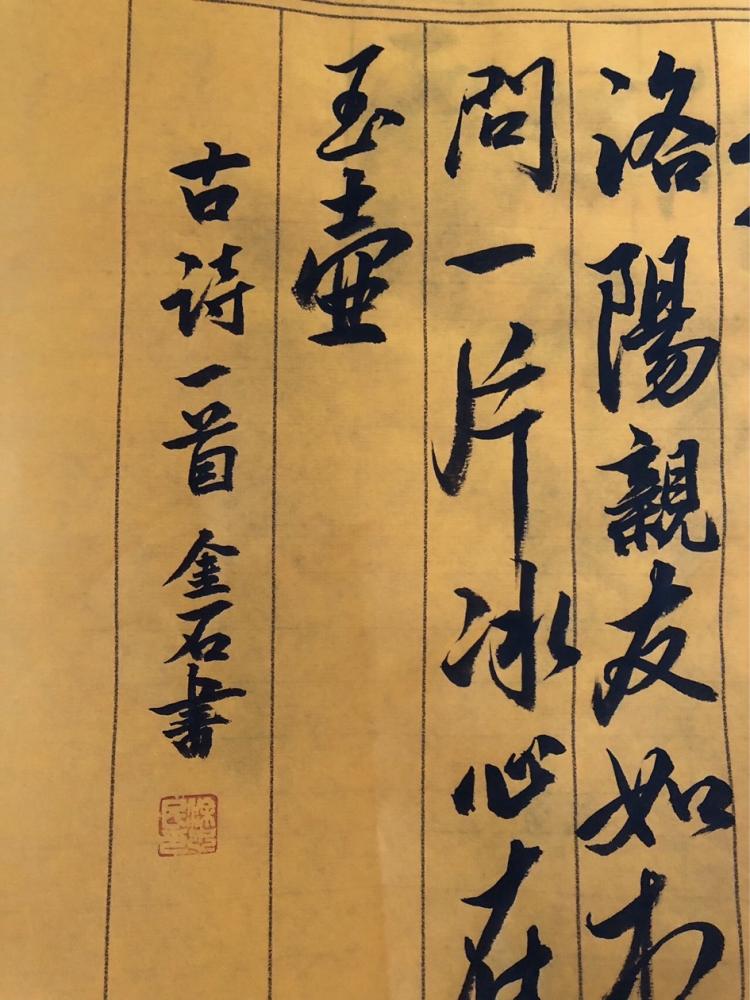 洛陽親友如相
問一片冰心在
玉壺
古詩一首 金石書